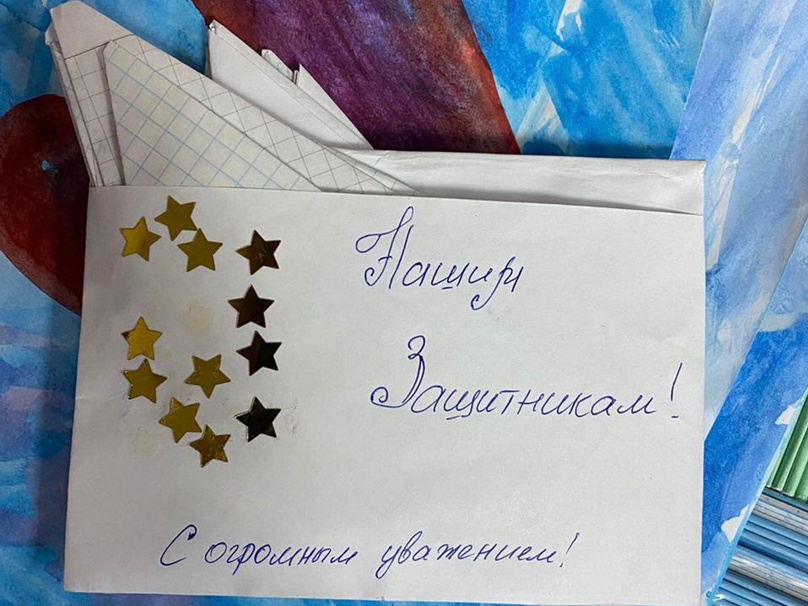 Нашим
Защитникам!
С огромным уважением!